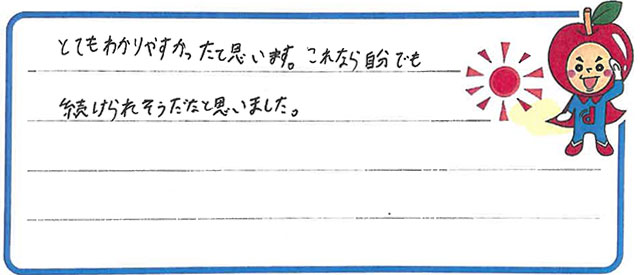 とてもわかりやすかったと思います。これなら自分でも
続けられそうだなと思いました。